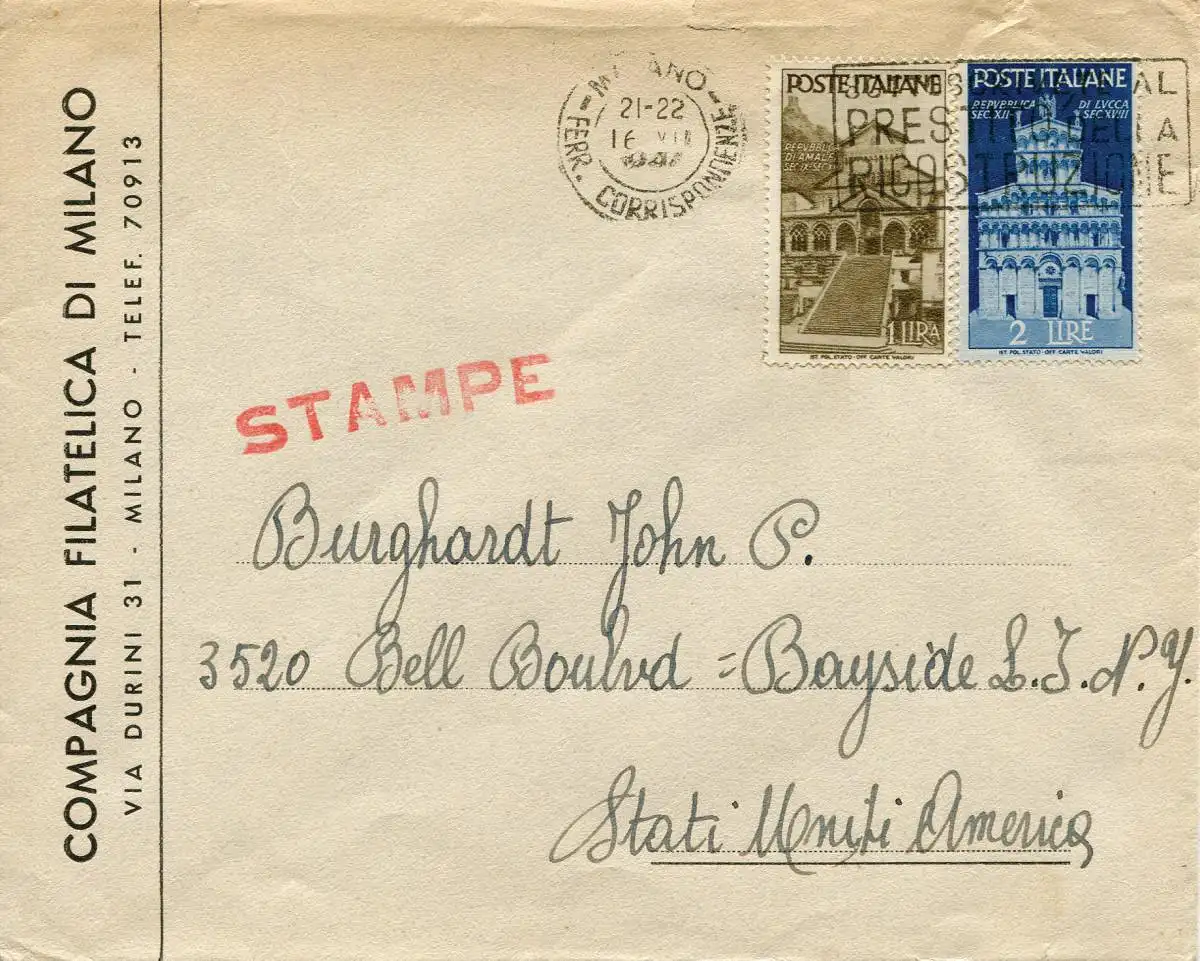 COMPAGNIA FILATELICA DI MILANO
VIA DURINI 31 - MILANO - TELEF. 70913
MILANO
21-22
16 VII
FERR. CORRISPONDENZE
POSTE ITALIANE
REPVBBLICA
DI AMALFI
1 LIRA
IST. POL. STATO - OFF. CARTE VALORI
POSTE ITALIANE
REPVBBLICA DI LVCCA
SEC. XII- SEC. XVIII
2 LIRE
IST. POL. STATO - OFF. CARTE VALORI
SOTTOSCRIVETE AL
PRESTITO DELLA
RICOSTRUZIONE
STAMPE
Burghardt John P.
3520 Bell Boulvd = Bayside L.I. N.Y.
Stati Uniti America